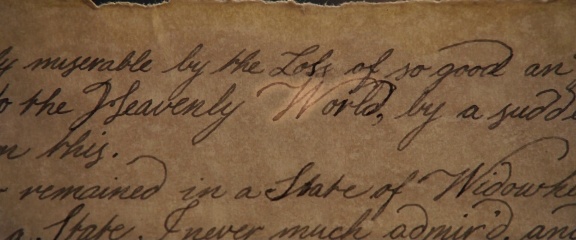 ly miserable by the Loss of so good an
to the Heavenly World, by a sudde
m this.
remained in a State of Widowho
a State I never much admir'd, and